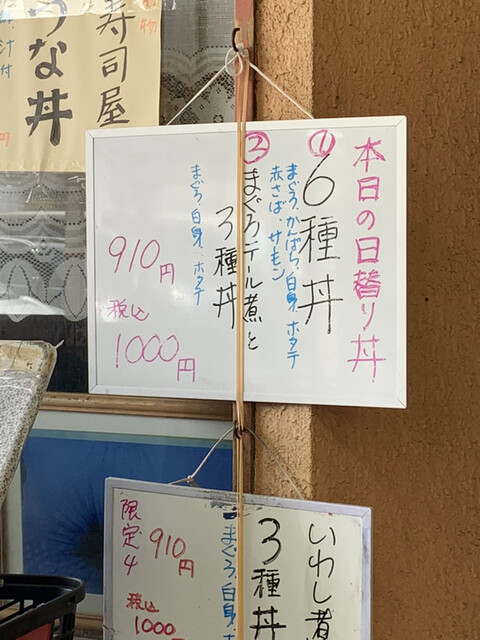 本日の日替り丼
① 6種丼
まぐろ、かんぱち、白身、ホタテ
赤さば、サーモン
② まぐろテール煮と
3種丼
まぐろ、白身、ホタテ
910円
税込
1000円
寿司屋
うな丼
いわし煮
3種丼
まぐろ、白身、ホ
910円
税込
1000
限定4